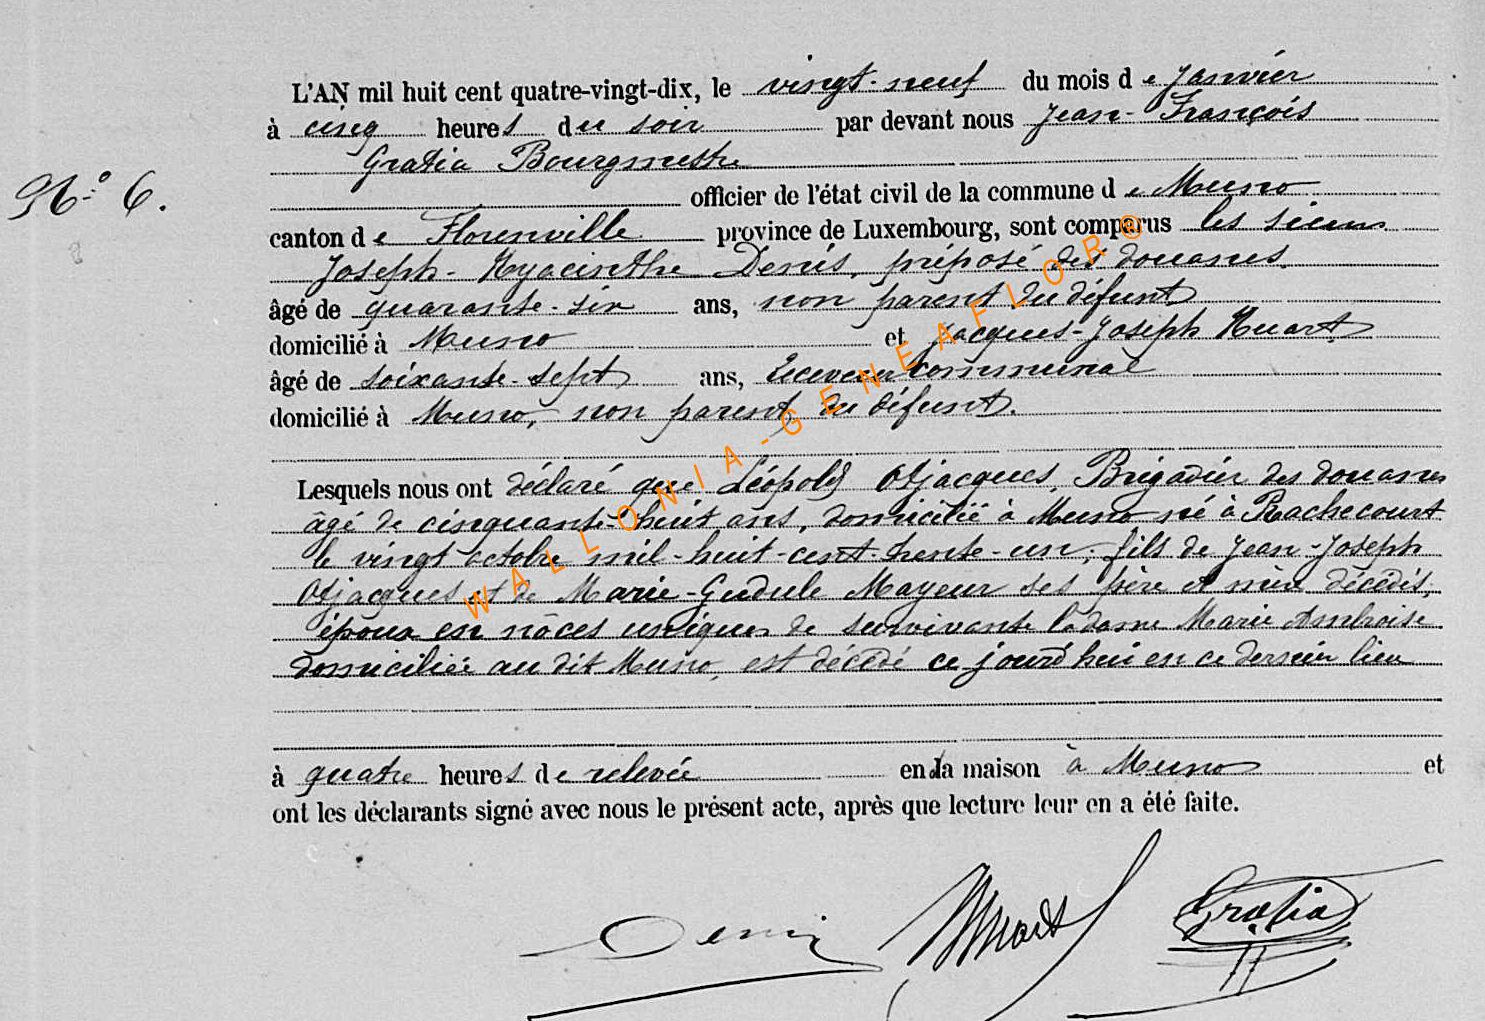 L'AN mil huit cent quatre-vingt-dix, le vingt-neuf du mois de Janvier
à cinq heures du soir par devant nous Jean-François
Gratia Bourgmestre
N° 6.
officier de l'état civil de la commune de Muno
canton de Florenville province de Luxembourg, sont comparus les sieurs
Joseph-Hyacinthe Denis, préposé des douanes
âgé de quarante-six ans, non parent du défunt
domicilié à Muno et Jacques-Joseph Huart
âgé de soixante-sept ans, receveur communal
domicilié à Muno, non parent du défunt.
Lesquels nous ont déclaré que Léopold Otjacques, Brigadier des douanes
âgé de cinquante-huit ans, domicilié à Muno né à Rachecourt
le vingt octobre mil-huit-cent-trente-un, fils de Jean-Joseph
Otjacques et de Marie-Gudule Mayeur ses père et mère décédés,
époux en nôces uniques de survivante la dame Marie Ambroise
domiciliée au dit Muno, est décédé ce jourd'hui en ce dernier lieu
à quatre heures de relevée en la maison à Muno et
ont les déclarants signé avec nous le présent acte, après que lecture leur en a été faite.
Denis Huart Gratia
WALLONIA-GENEAFLOR©